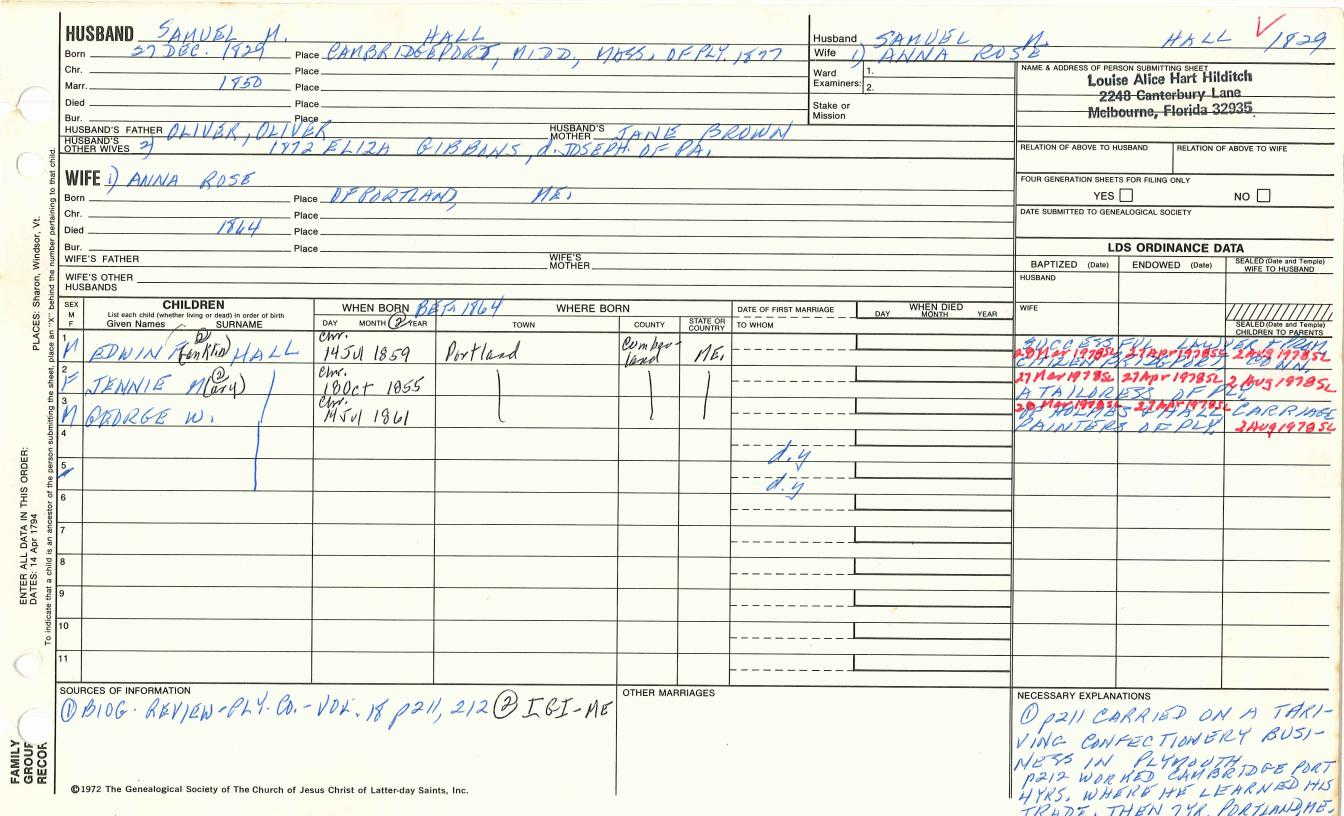 HUSBAND SAMUEL M. HALL
Born 27 DEC. 1829 Place CAMBRIDGEPORT, MIDD, MASS. OF PLY. 1877
Chr. Place
Marr. 1850 Place
Died Place
Bur. Place
HUSBAND'S FATHER OLIVER, OLIVER HUSBAND'S MOTHER JANE BROWN
HUSBAND'S OTHER WIVES 2) 1872 ELIZA GIBBANS, d. JOSEPH OF PA.
WIFE 1) ANNA ROSE
Born Place OF PORTLAND, ME.
Chr. Place
Died 1864 Place
Bur. Place
WIFE'S FATHER WIFE'S MOTHER
WIFE'S OTHER HUSBANDS
Husband SAMUEL M. HALL 1829
Wife 1) ANNA ROSE
Ward Examiners: 1.
2.
Stake or Mission
NAME & ADDRESS OF PERSON SUBMITTING SHEET
Louise Alice Hart Hilditch
2248 Canterbury Lane
Melbourne, Florida 32935
RELATION OF ABOVE TO HUSBAND RELATION OF ABOVE TO WIFE
FOUR GENERATION SHEETS FOR FILING ONLY
YES NO
DATE SUBMITTED TO GENEALOGICAL SOCIETY
LDS ORDINANCE DATA
BAPTIZED (Date) ENDOWED (Date) SEALED (Date and Temple) WIFE TO HUSBAND
HUSBAND
WIFE
SEALED (Date and Temple) CHILDREN TO PARENTS
SEX M F
CHILDREN
List each child (whether living or dead) in order of birth
Given Names SURNAME
WHEN BORN BET. 1864 WHERE BORN
DAY MONTH ② YEAR TOWN COUNTY STATE OR COUNTRY
DATE OF FIRST MARRIAGE
TO WHOM
WHEN DIED
DAY MONTH YEAR
1 M EDWIN F(ranklin) ② HALL Chr. 14 Jul 1859 Portland Cumberland ME.
SUCCESSFUL LAWYER & PROM. CITIZEN BRIDGEPORT, CONN.
27 Apr 1978 SL 2 Aug 1978 SL
2 F JENNIE M(ary) ② Chr. 18 Oct 1855
27 Mar 1978 SL 27 Apr 1978 SL 2 Aug 1978 SL
A TAILORESS OF PLY.
3 M GEORGE W. Chr. 14 Jul 1861
27 Apr 1978 SL
OF HOLMES & HALL CARRIAGE PAINTERS OF PLY.
2 Aug 1978 SL
4 d.y
5 d.y
6
7
8
9
10
11
SOURCES OF INFORMATION
① BIOG. REVIEW-PLY. CO.-VOL. 18 p211, 212 ② IGI-ME
OTHER MARRIAGES
NECESSARY EXPLANATIONS
① p211 CARRIED ON A THRI-
VING CONFECTIONERY BUSI-
NESS IN PLYMOUTH
p212 WORKED CAMBRIDGE PORT
4 YRS. WHERE HE LEARNED HIS
TRADE, THEN 7 YR. PORTLAND, ME.
©1972 The Genealogical Society of The Church of Jesus Christ of Latter-day Saints, Inc.
FAMILY GROUP RECOR
ENTER ALL DATA IN THIS ORDER:
DATES: 14 Apr 1794
PLACES: Sharon, Windsor, Vt.
To indicate that a child is an ancestor of the person submitting the sheet, place an "X" behind the number pertaining to that child.